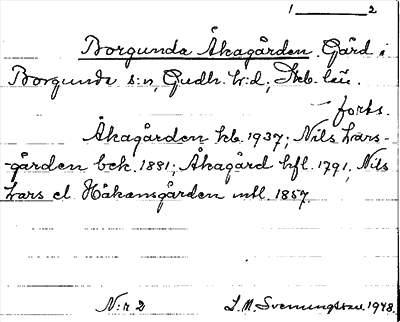 1 2
Borgunda Åkagården. Gård i
Borgunda s:n, Gudh. h:d, Skb. län.
– forts.
Åkagården kb. 1937; Nils Lars-
gården bek. 1881; Åkagård hfl. 1791, Nils
Lars el. Håkansgården mtl. 1857.
N:r 2 I. M. Svenungsson 1948.